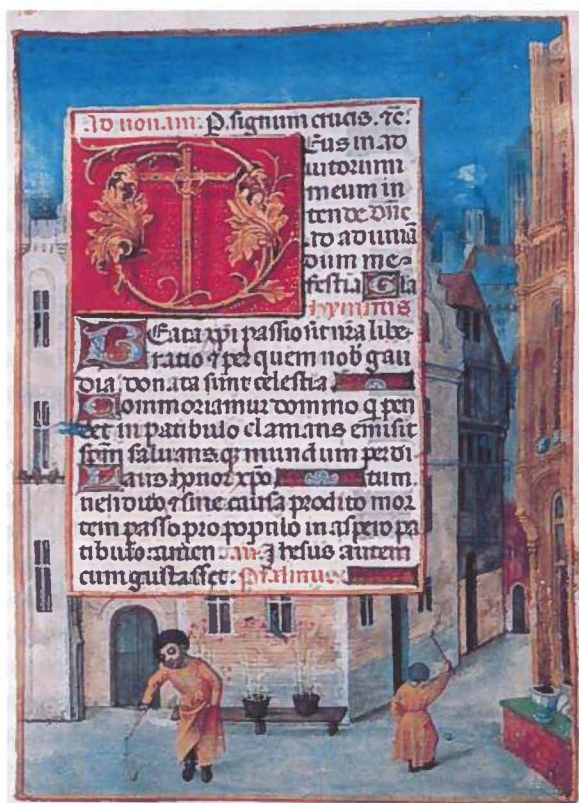 Ad nonam. P. signum crucis. ⁊c.
Eus in ad
iutorium
meum in
tende dn̄e
ad adiuuā
dum me
festia Gla
hymnus
Beata xp̄i passio sit nr̄a libe
ratio ⁊ per quem nob̄ gau
dia donata sunt celestia
Commoriamur domino q pen
det in patibulo clamans emisit
spm̄ saluans q mundum perdi
Laus honor xp̄o tum
uendito ⁊ sine causa prodito mor
tem passo pro populo in aspero pa
tibulo amen an. ihesus autem
cum gustasset. Psalmus